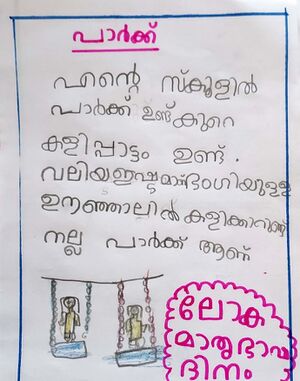 പാർക്ക്
എന്റെ സ്കൂളിൽ
പാർക്ക് ഉണ്ട് കുറെ
കളിപ്പാട്ടം ഉണ്ട്.
വലിയ ഇഷ്ടമാണ് ഭംഗിയുള്ള
ഊഞ്ഞാലിൽ കളിക്കാറുണ്ട്
നല്ല പാർക്ക് ആണ്
ലോക
മാതൃഭാഷ
ദിനം